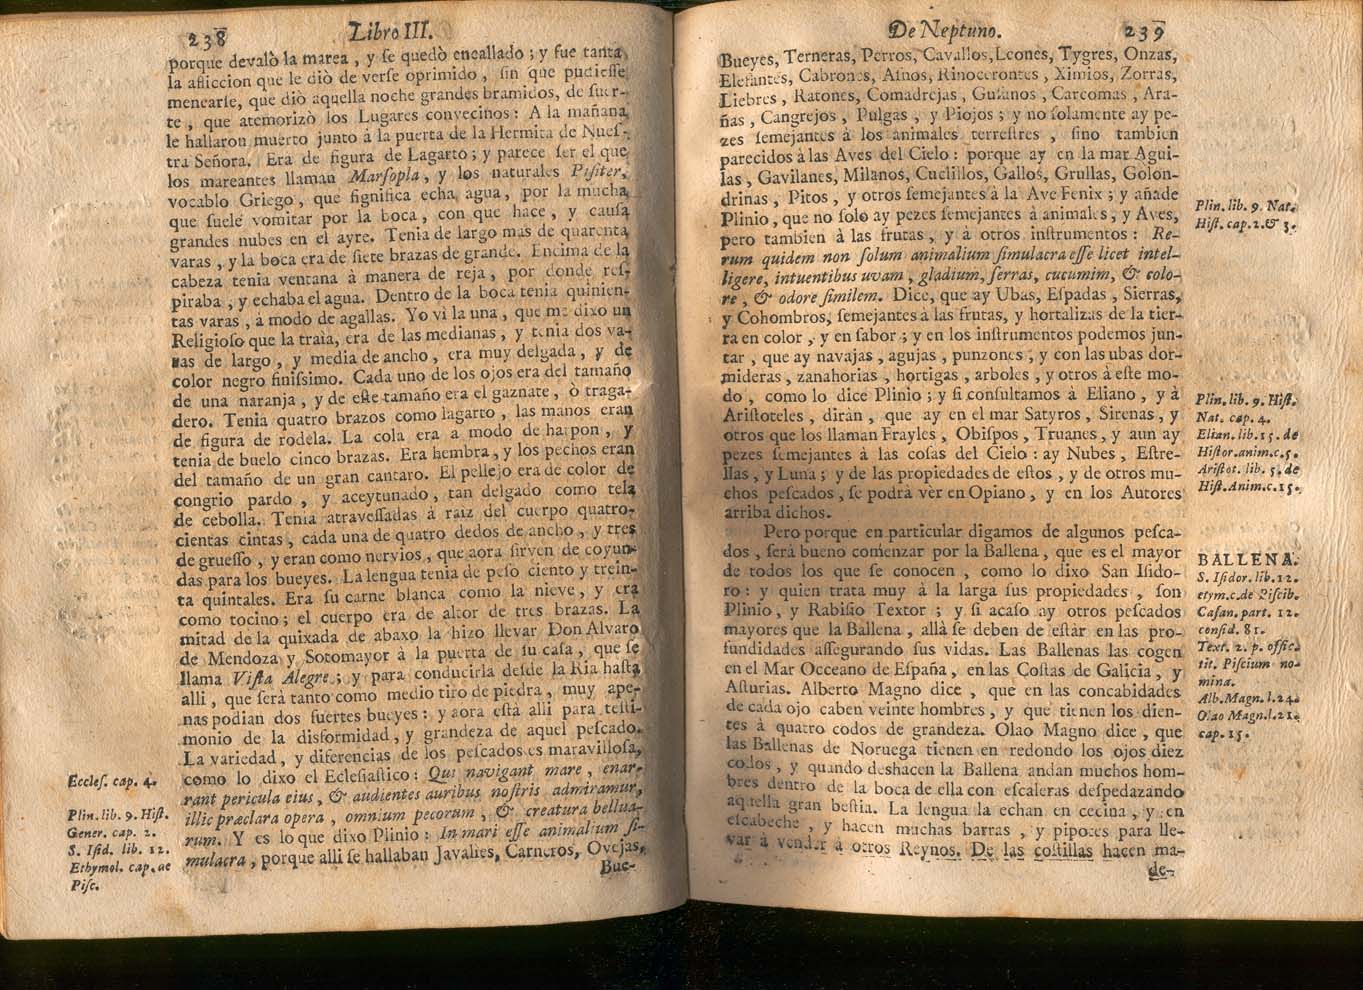 238 Libro III.
porque devalò la marea, y ſe quedò encallado; y fue tanta
la afliccion que le diò de verſe oprimido, ſin que pudieſſe
menearſe, que diò aquella noche grandes bramidos, de ſuer-
te, que atemorizò los Lugares convecinos: A la mañana
le hallaron muerto junto à la puerta de la Hermita de Nueſ-
tra Señora. Era de figura de Lagarto; y parece ſer el que
los mareantes llaman Marſopla, y los naturales Piſiter,
vocablo Griego, que ſignifica echa agua, por la mucha
que ſuele vomitar por la boca, con que hace, y cauſa
grandes nubes en el ayre. Tenia de largo mas de quarenta
varas, y la boca era de ſiete brazas de grande. Encima de la
cabeza tenia ventana à manera de reja, por donde reſ-
piraba, y echaba el agua. Dentro de la boca tenia quinien-
tas varas, à modo de agallas. Yo vi la una, que me dixo un
Religioſo que la traìa, era de las medianas, y tenia dos va-
ras de largo, y media de ancho, era muy delgada, y de
color negro finiſsimo. Cada uno de los ojos era del tamaño
de una naranja, y de eſte tamaño era el gaznate, ò traga-
dero. Tenia quatro brazos como lagarto, las manos eran
de figura de rodela. La cola era a modo de harpon, y
tenia de buelo cinco brazas. Era hembra, y los pechos eran
del tamaño de un gran cantaro. El pellejo era de color de
congrio pardo, y aceytunado, tan delgado como tela
de cebolla. Tenia atraveſſadas à raiz del cuerpo quatro-
cientas cintas, cada una de quatro dedos de ancho, y tres
de grueſſo, y eran como nervios, que aora ſirven de coyun-
das para los bueyes. La lengua tenia de peſo ciento y trein-
ta quintales. Era ſu carne blanca como la nieve, y era
como tocino; el cuerpo era de altor de tres brazas. La
mitad de la quixada de abaxo la hizo llevar Don Alvaro
de Mendoza y Sotomayor à la puerta de ſu caſa, que ſe
llama Viſta Alegre; y para conducirla deſde la Ria haſta
alli, que ſerà tanto como medio tiro de piedra, muy ape-
nas podian dos fuertes bueyes: y aora eſtà alli para teſti-
monio de la disformidad, y grandeza de aquel peſcado.
La variedad, y diferencias de los peſcados es maravilloſa,
como lo dixo el Ecleſiaſtico: Qui navigant mare, enar-
rant pericula eius, & audientes auribus noſtris admiramur,
illic præclara opera, omnium pecorum, & creatura bellua-
rum. Y es lo que dixo Plinio: In mari eſſe animalium ſi-
mulacra, porque alli ſe hallaban Javalies, Carneros, Ovejas,
Bue-
Eccleſ. cap. 4.
Plin. lib. 9. Hiſt.
Gener. cap. 2.
S. Iſid. lib. 12.
Ethymol. cap. de
Piſc.
De Neptuno. 239
Bueyes, Terneras, Perros, Cavallos, Leones, Tygres, Onzas,
Elefantes, Cabrones, Aſnos, Rinocerontes, Ximios, Zorras,
Liebres, Ratones, Comadrejas, Guſanos, Carcomas, Ara-
ñas, Cangrejos, Pulgas, y Piojos; y no ſolamente ay pe-
zes ſemejantes à los animales terreſtres, ſino tambien
parecidos à las Aves del Cielo: porque ay en la mar Agui-
las, Gavilanes, Milanos, Cuclillos, Gallos, Grullas, Golon-
drinas, Pitos, y otros ſemejantes à la Ave Fenix; y añade
Plinio, que no ſolo ay pezes ſemejantes à animales, y Aves,
pero tambien à las frutas, y à otros inſtrumentos: Re-
rum quidem non ſolum animalium ſimulacra eſſe licet intel-
ligere, intuentibus uvam, gladium, ſerras, cucumim, & colo-
re, & odore ſimilem. Dice, que ay Ubas, Eſpadas, Sierras,
y Cohombros, ſemejantes à las frutas, y hortalizas de la tier-
ra en color, y en ſabor; y en los inſtrumentos podemos jun-
tar, que ay navajas, agujas, punzones, y con las ubas dor-
mideras, zanahorias, hortigas, arboles, y otros à eſte mo-
do, como lo dice Plinio; y ſi conſultamos à Eliano, y à
Ariſtoteles, diràn, que ay en el mar Satyros, Sirenas, y
otros que los llaman Frayles, Obiſpos, Truanes, y aun ay
pezes ſemejantes à las coſas del Cielo: ay Nubes, Eſtre-
llas, y Luna; y de las propiedades de eſtos, y de otros mu-
chos peſcados, ſe podrà vèr en Opiano, y en los Autores
arriba dichos.
Pero porque en particular digamos de algunos peſca-
dos, ſerà bueno comenzar por la Ballena, que es el mayor
de todos los que ſe conocen, como lo dixo San Iſido-
ro: y quien trata muy à la larga ſus propiedades, ſon
Plinio, y Rabiſio Textor; y ſi acaſo ay otros peſcados
mayores que la Ballena, allà ſe deben de eſtàr en las pro-
fundidades aſſegurando ſus vidas. Las Ballenas las cogen
en el Mar Occeano de Eſpaña, en las Coſtas de Galicia, y
Aſturias. Alberto Magno dice, que en las concabidades
de cada ojo caben veinte hombres, y que tienen los dien-
tes à quatro codos de grandeza. Olao Magno dice, que
las Ballenas de Noruega tienen en redondo los ojos diez
codos, y quando deshacen la Ballena andan muchos hom-
bres dentro de la boca de ella con eſcaleras deſpedazando
aquella gran beſtia. La lengua la echan en cecina, y en
eſcabeche, y hacen muchas barras, y pipotes para lle-
var à vender à otros Reynos. De las coſtillas hacen ma-
de-
Plin. lib. 9. Nat.
Hiſt. cap. 2. & 3.
Plin. lib. 9. Hiſt.
Nat. cap. 4.
Elian. lib. 15. de
Hiſtor. anim. c. 5.
Ariſtot. lib. 5. de
Hiſt. Anim. c. 15.
BALLENA.
S. Iſidor. lib. 12.
etym. c. de Piſcib.
Caſan. part. 12.
conſid. 81.
Text. 2. p. offic.
tit. Piſcium no-
mina.
Alb. Magn. l. 24.
Olao Magn. l. 21.
cap. 15.